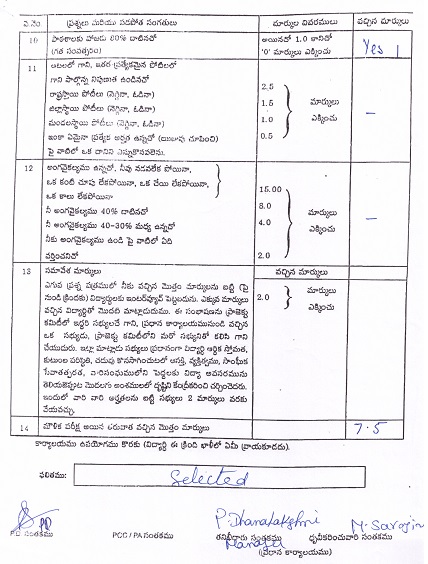 వ.నెం ప్రశ్నలు మరియు సడపోత సంగతులు మార్కుల వివరములు వచ్చిన మార్కులు
10 పాఠశాలకు హాజరు 80% దాటినచో అయినచో 1.0 కానిచో Yes 1
(గత సంవత్సరం) '0' మార్కులు ఎక్కించు
11 ఆటలలో గాని, ఇతర ప్రత్యేకమైన పోటీలలో
గాని పాల్గొన్న నిపుణత ఉండినచో 2.5
రాష్ట్రస్థాయి పోటీలు (నెగ్గినా, ఓడినా) 1.5 మార్కులు
జిల్లాస్థాయి పోటీలు (నెగ్గినా, ఓడినా) 1.0 ఎక్కించు –
మండలస్థాయి పోటీలు (నెగ్గినా, ఓడినా) 0.5
ఇంకా ఏమైనా ప్రత్యేక అర్హత ఉన్నచో (ఋజువు చూపించి)
పై వాటిలో ఒక దానిని ఎన్నుకొనవలెను.
12 అంగవైకల్యము ఉన్నచో, నీవు నడవలేక పోయినా,
ఒక కంటి చూపు లేకపోయినా, ఒక చేయి లేకపోయినా, 15.00
ఒక కాలు లేకపోయినా 8.0
నీ అంగవైకల్యము 40% దాటినచో 4.0 మార్కులు
నీ అంగవైకల్యము 40-30% మధ్య ఉన్నచో ఎక్కించు –
నీకు అంగవైకల్యము ఉండి పై వాటిలో ఏది
వర్తించనిచో 2.0
13 సమావేశ మార్కులు వచ్చిన మార్కులు
ఎగువ ప్రశ్న పత్రములో నీకు వచ్చిన మొత్తం మార్కులను బట్టి (పై
నుండి క్రిందకు) విద్యార్థులకు ఇంటర్వ్యూవ్ పెట్టబడును. ఎక్కువ మార్కులు 2.0 మార్కులు
వచ్చిన విద్యార్థితో మొదటి మాట్లాడుదుము. ఈ సంభాషణను ప్రాజెక్టు ఎక్కించు
కమిటీలో ఇద్దరి సభ్యులచే గాని, ప్రధాన కార్యాలయమునుండి వచ్చిన
ఒక సభ్యుడు, ప్రాజెక్టు కమిటీలోని మరో సభ్యునితో కలిసి గాని
చేయుదురు. ఇట్లా మాట్లాడు సభ్యులు ప్రధానంగా విద్యార్థి ఆర్థిక స్తోమత,
కుటుంబ పరిస్థితి, చదువు కొనసాగించుటలో ఆసక్తి, వ్యక్తిత్వము, సాంఘిక
సేవాతత్పరత, వారిసంఘములోని పెద్దలకు విద్యా అవసరమును
తెలియజెప్పుట మొదలగు అంశములలో దృష్టిని కేంద్రీకరించి చర్చించెదరు.
ఇందులో వారి వారి అర్హతలను బట్టి సభ్యులు 2 మార్కులు వరకు
వేయవచ్చు.
14 మౌఖిక పరీక్ష అయిన తరువాత వచ్చిన మొత్తం మార్కులు 7.5
కార్యాలయము ఉపయోగము కొరకు (విద్యార్థి ఈ క్రింది ఖాళీలో ఏమీ వ్రాయకూడదు).
ఫలితము: Selected
PD P. Dhanalakshmi M. Sarojin
P.D. సంతకము PCC / PA సంతకము తనిఖీదారు సంతకము ధృవీకరించువారి సంతకము
Manager (ప్రధాన కార్యాలయము)